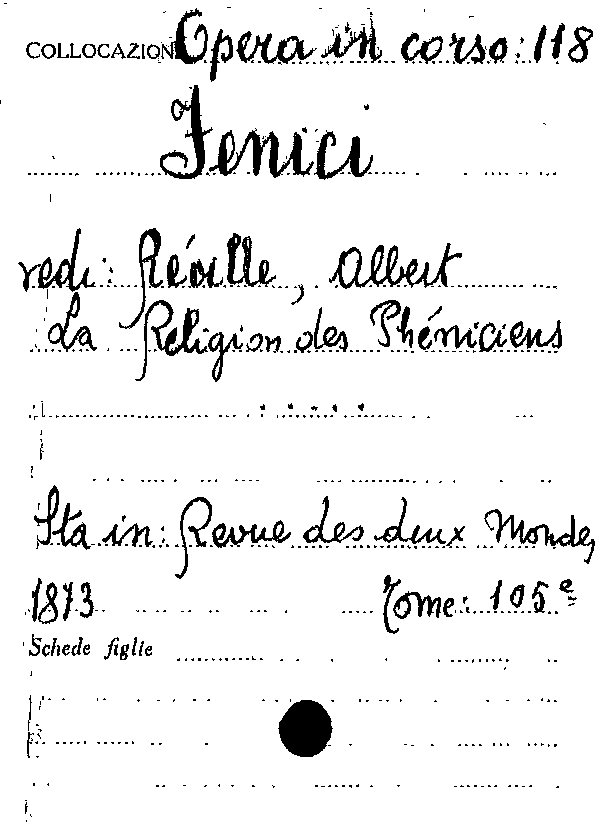 COLLOCAZIONE Opera in corso: 118
Fenici
vedi: Réville, Albert
La Religion des Phéniciens
.....
Sta in: Revue des deux Mondes,
1873 Tome: 105e
Schede figlie